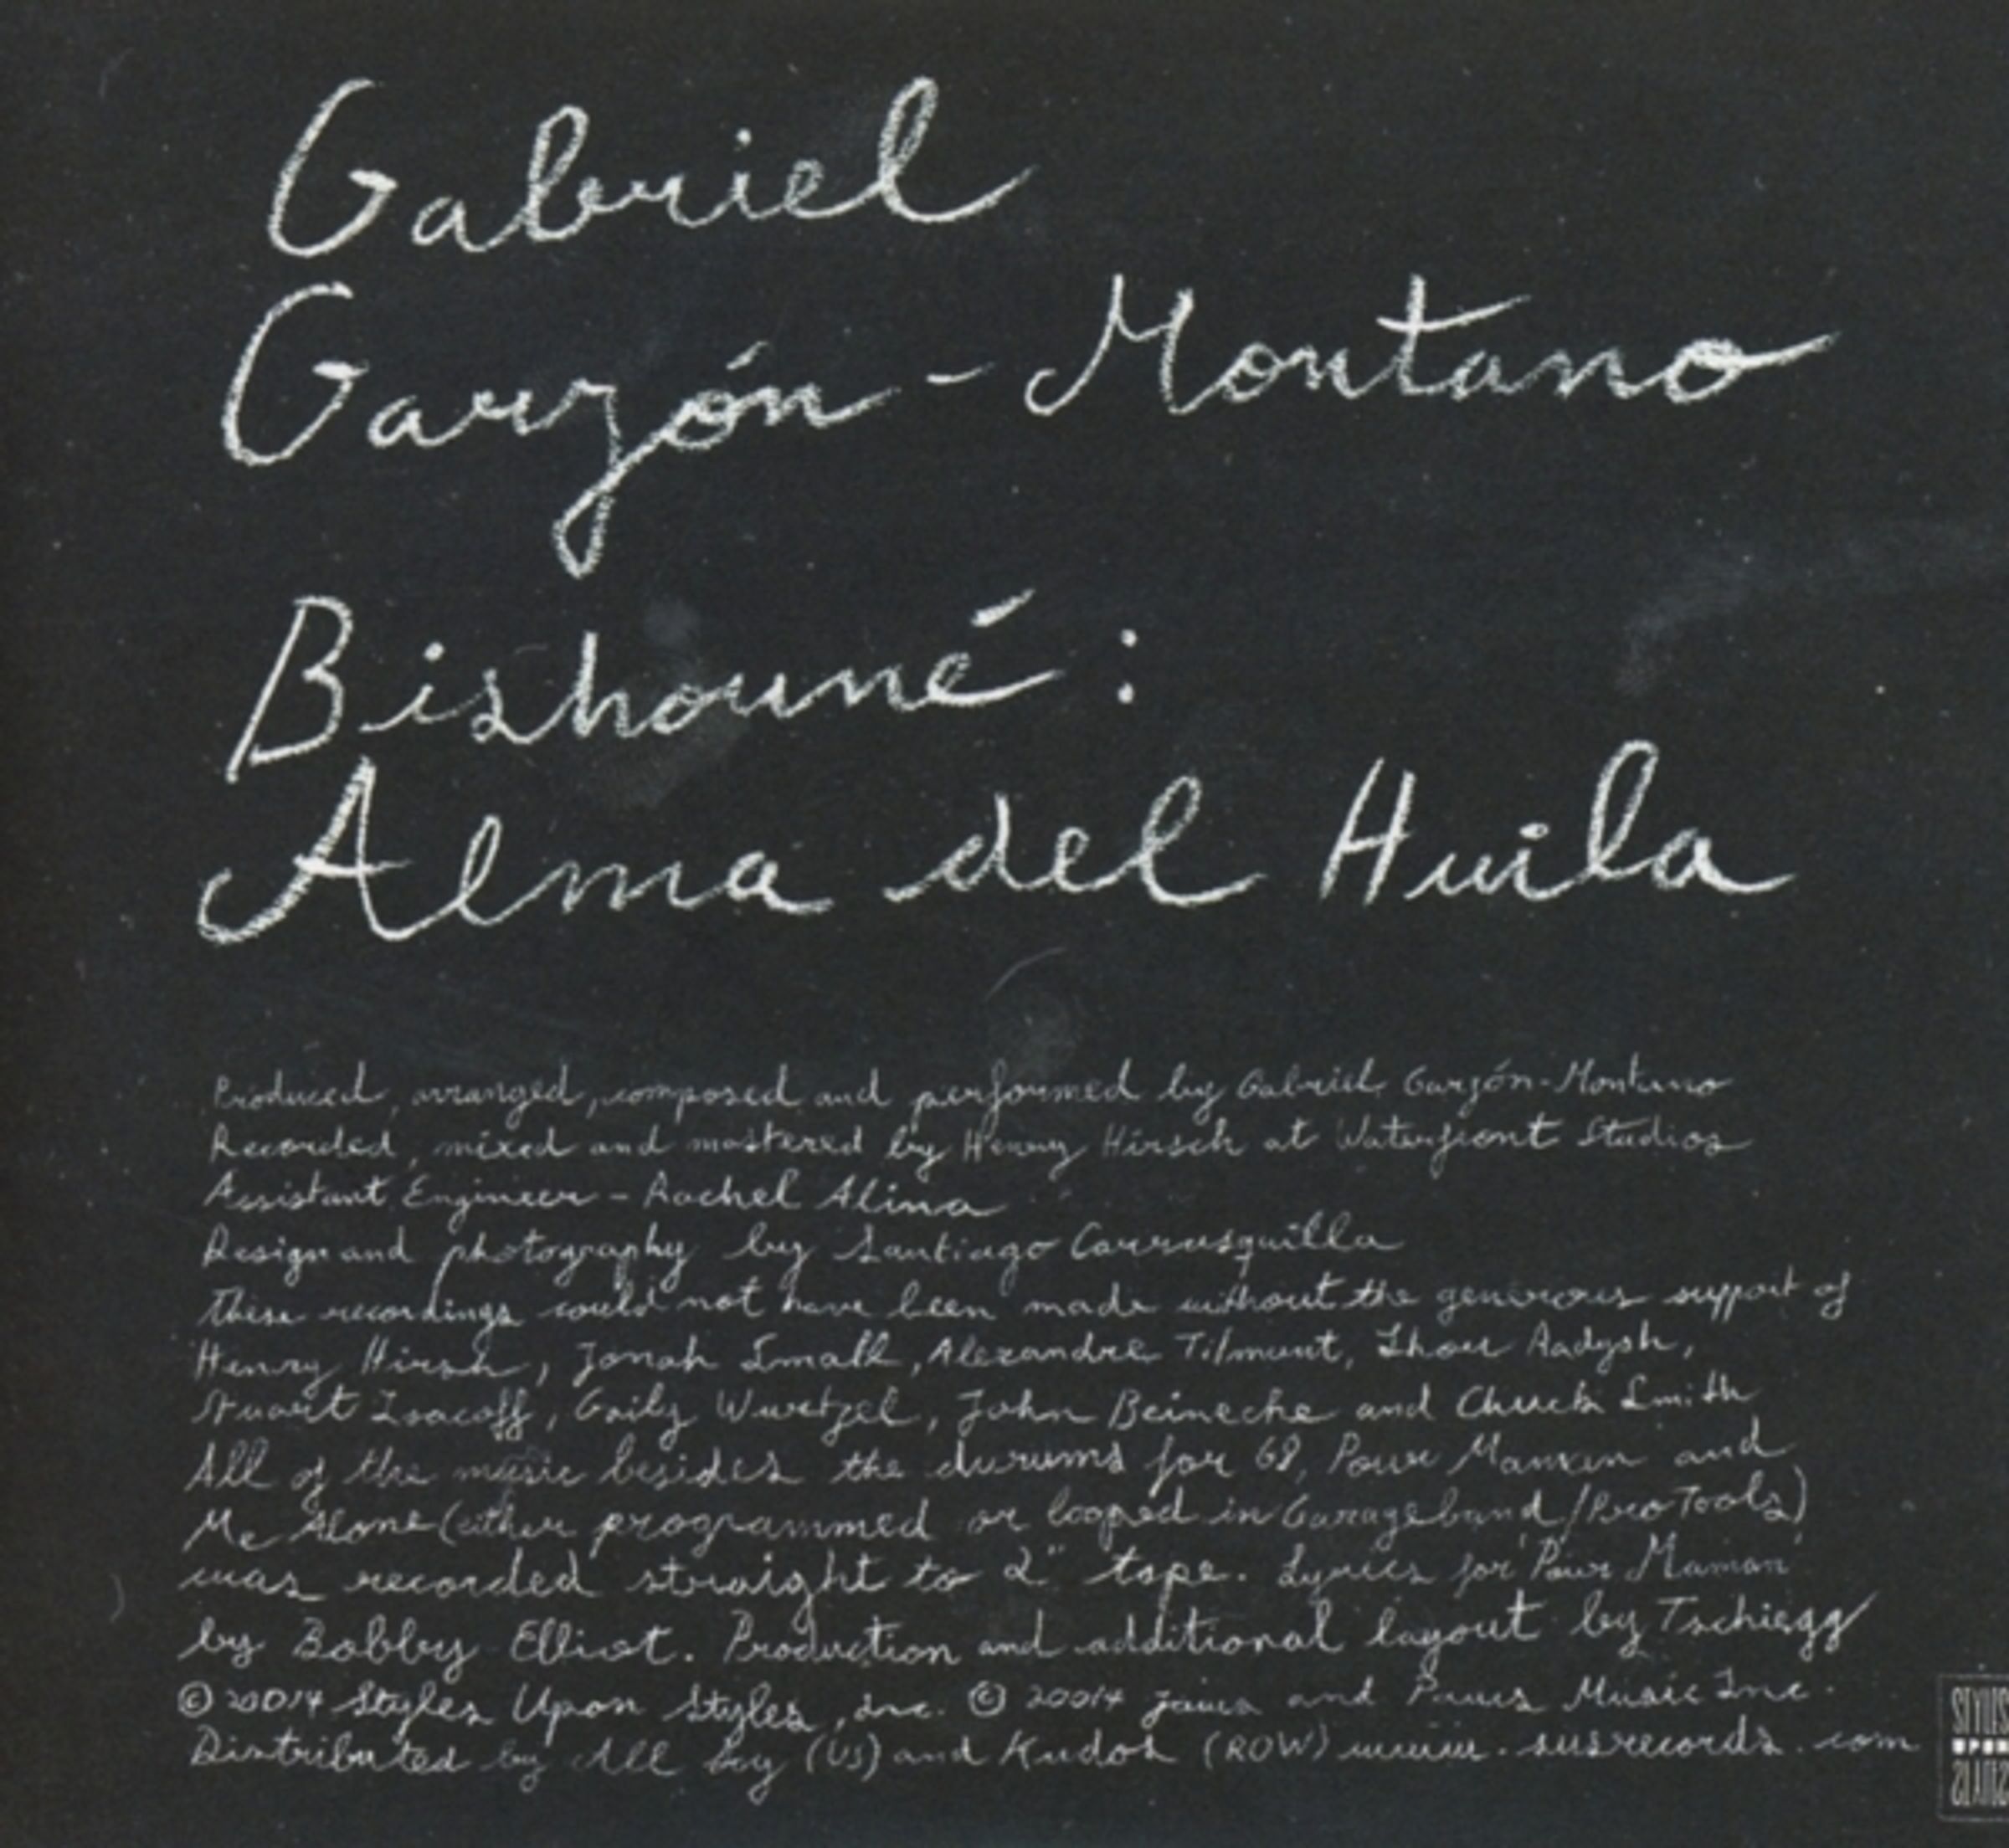 Gabriel
Garzón-Montano
Bishouné:
Alma del Huila
Produced, arranged, composed and performed by Gabriel Garzón-Montano
Recorded, mixed and mastered by Henry Hirsch at Waterfront Studios
Assistant Engineer - Rachel Alina
Design and photography by Santiago Carrasquilla
These recordings could not have been made without the generous support of
Henry Hirsh, Jonah Small, Alexandre Tilmunt, Aadysh,
Stuart Isacoff, Gaily Wurtzel, John Beinecke and Chuck Smith
All of the music besides the drums for 68, Pour Maman and
Me Alone (either programmed or looped in Garageband/ProTools)
was recorded straight to 2" tape. Lyrics for 'Pour Maman'
by Bobby Elliot. Production and additional layout by Tschiegg
© 20014 Styles Upon Styles, Inc. © 20014 Jaws and Paws Music Inc.
Distributed by All by (US) and Kudos (ROW) www.susrecords.com
STYLES
UPON
STYLES